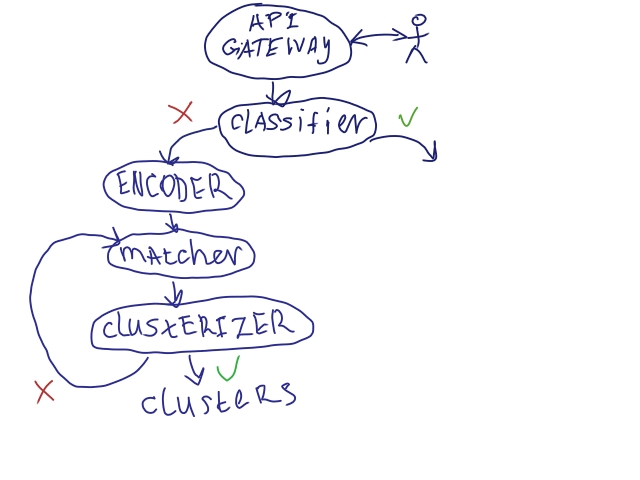 API
GATEWAY
CLASSifier
ENCODER
mAtcher
clustERIZER
clusteRS